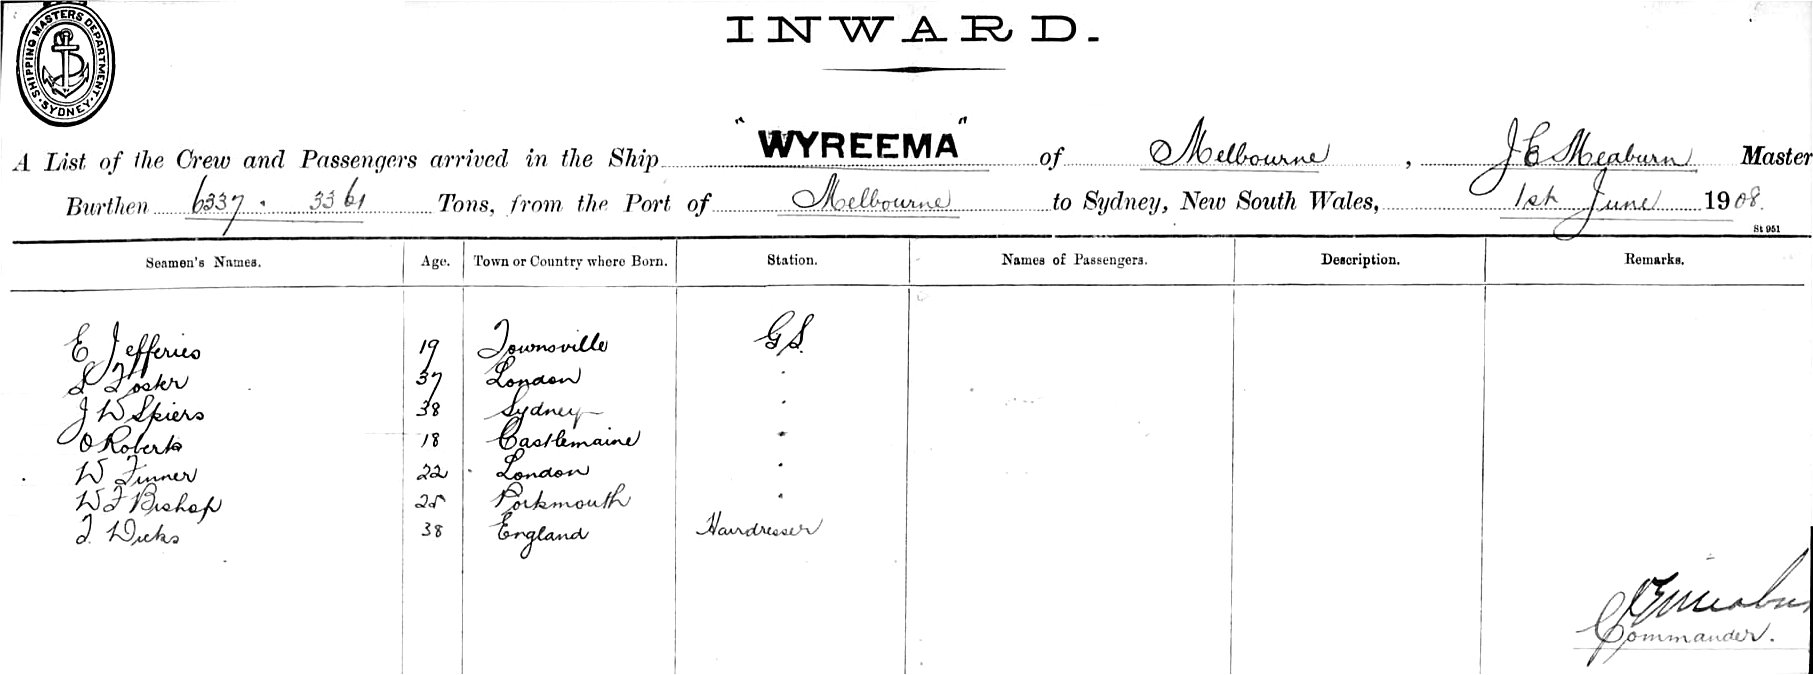 SHIPPING MASTERS DEPARTMENT · SYDNEY ·
INWARD.
A List of the Crew and Passengers arrived in the Ship "WYREEMA" of Melbourne, J E Meaburn Master
Burthen 6337 . 3361 Tons, from the Port of Melbourne to Sydney, New South Wales, 1st June 1908.
St 951
Seamen's Names. Age. Town or Country where Born. Station. Names of Passengers. Description. Remarks.
E Jefferies 19 Townsville G S.
S Foster 37 London "
J W Spiers 38 Sydney "
O Roberts 18 Castlemaine "
W Finner 22 London "
W F Bishop 25 Portsmouth "
T. Wicks 38 England Hairdresser
J E Meaburn
Commander.